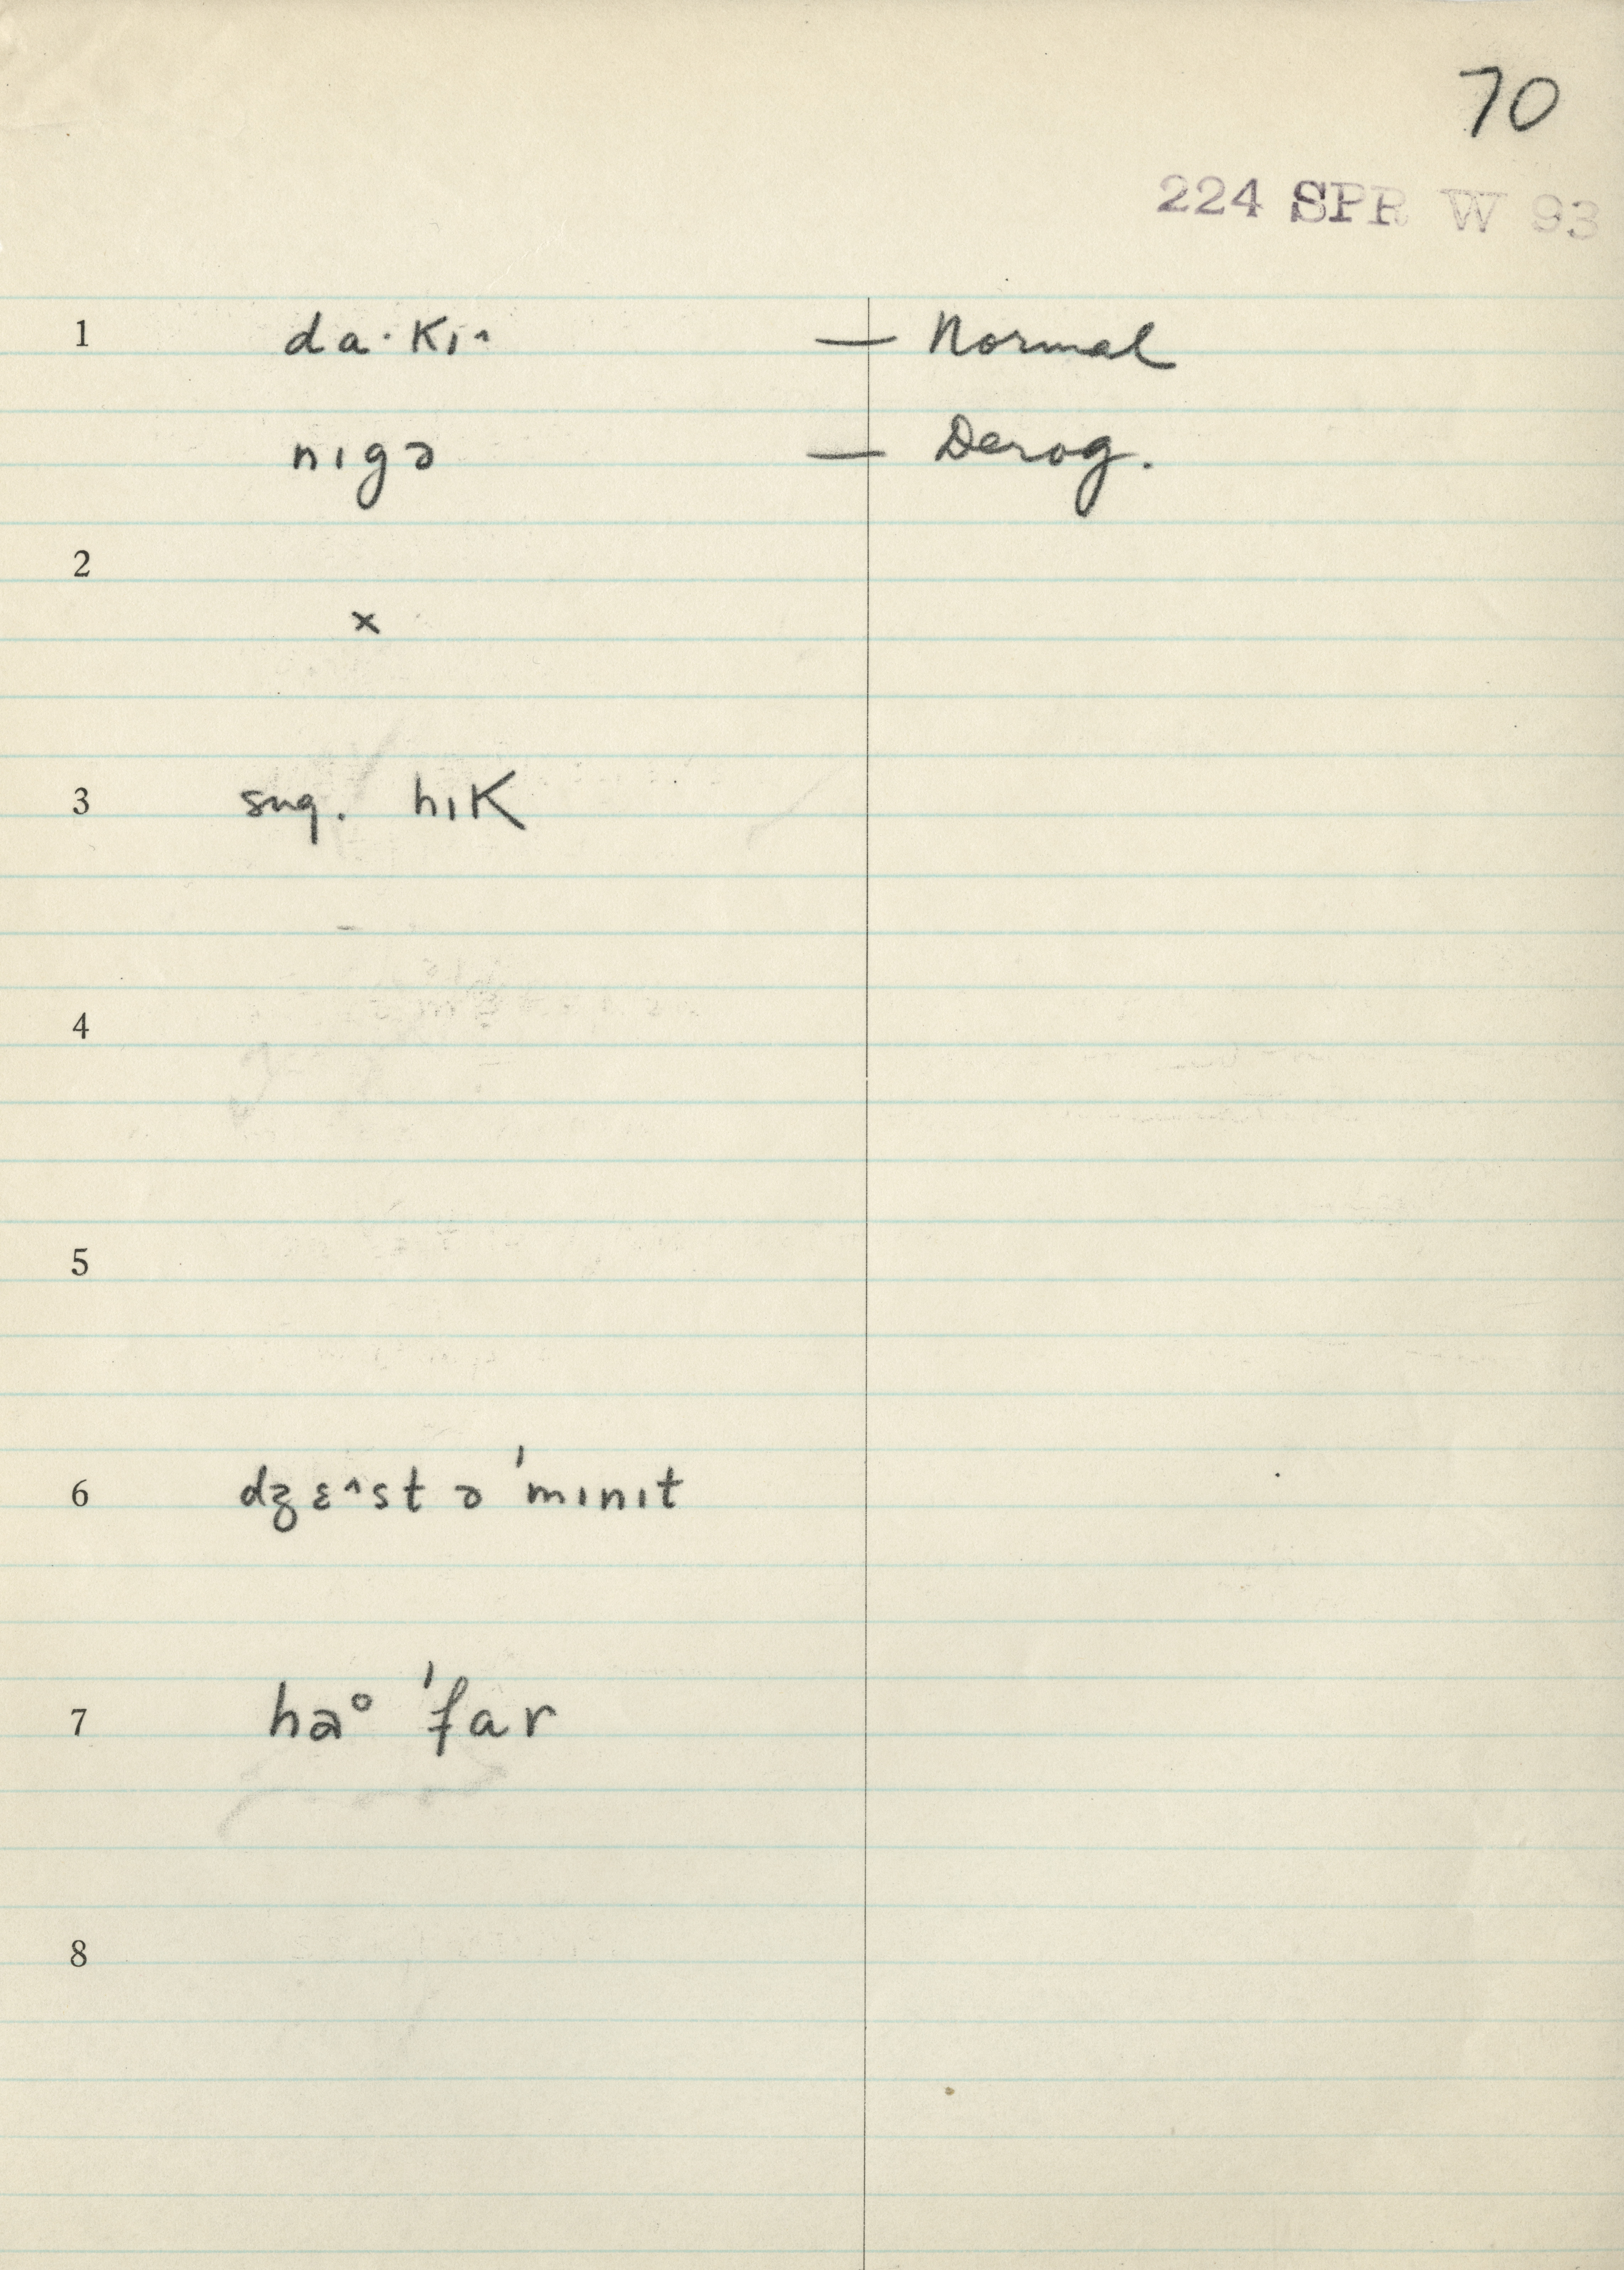 70
224 SPR W 93
1 da·kɪ^ — Normal
nɪgə — Derog.
2
x
3 sug. hɪk
4
5
6 dʒɛ^st ə 'mɪnɪt
7 haᵒ 'far
8